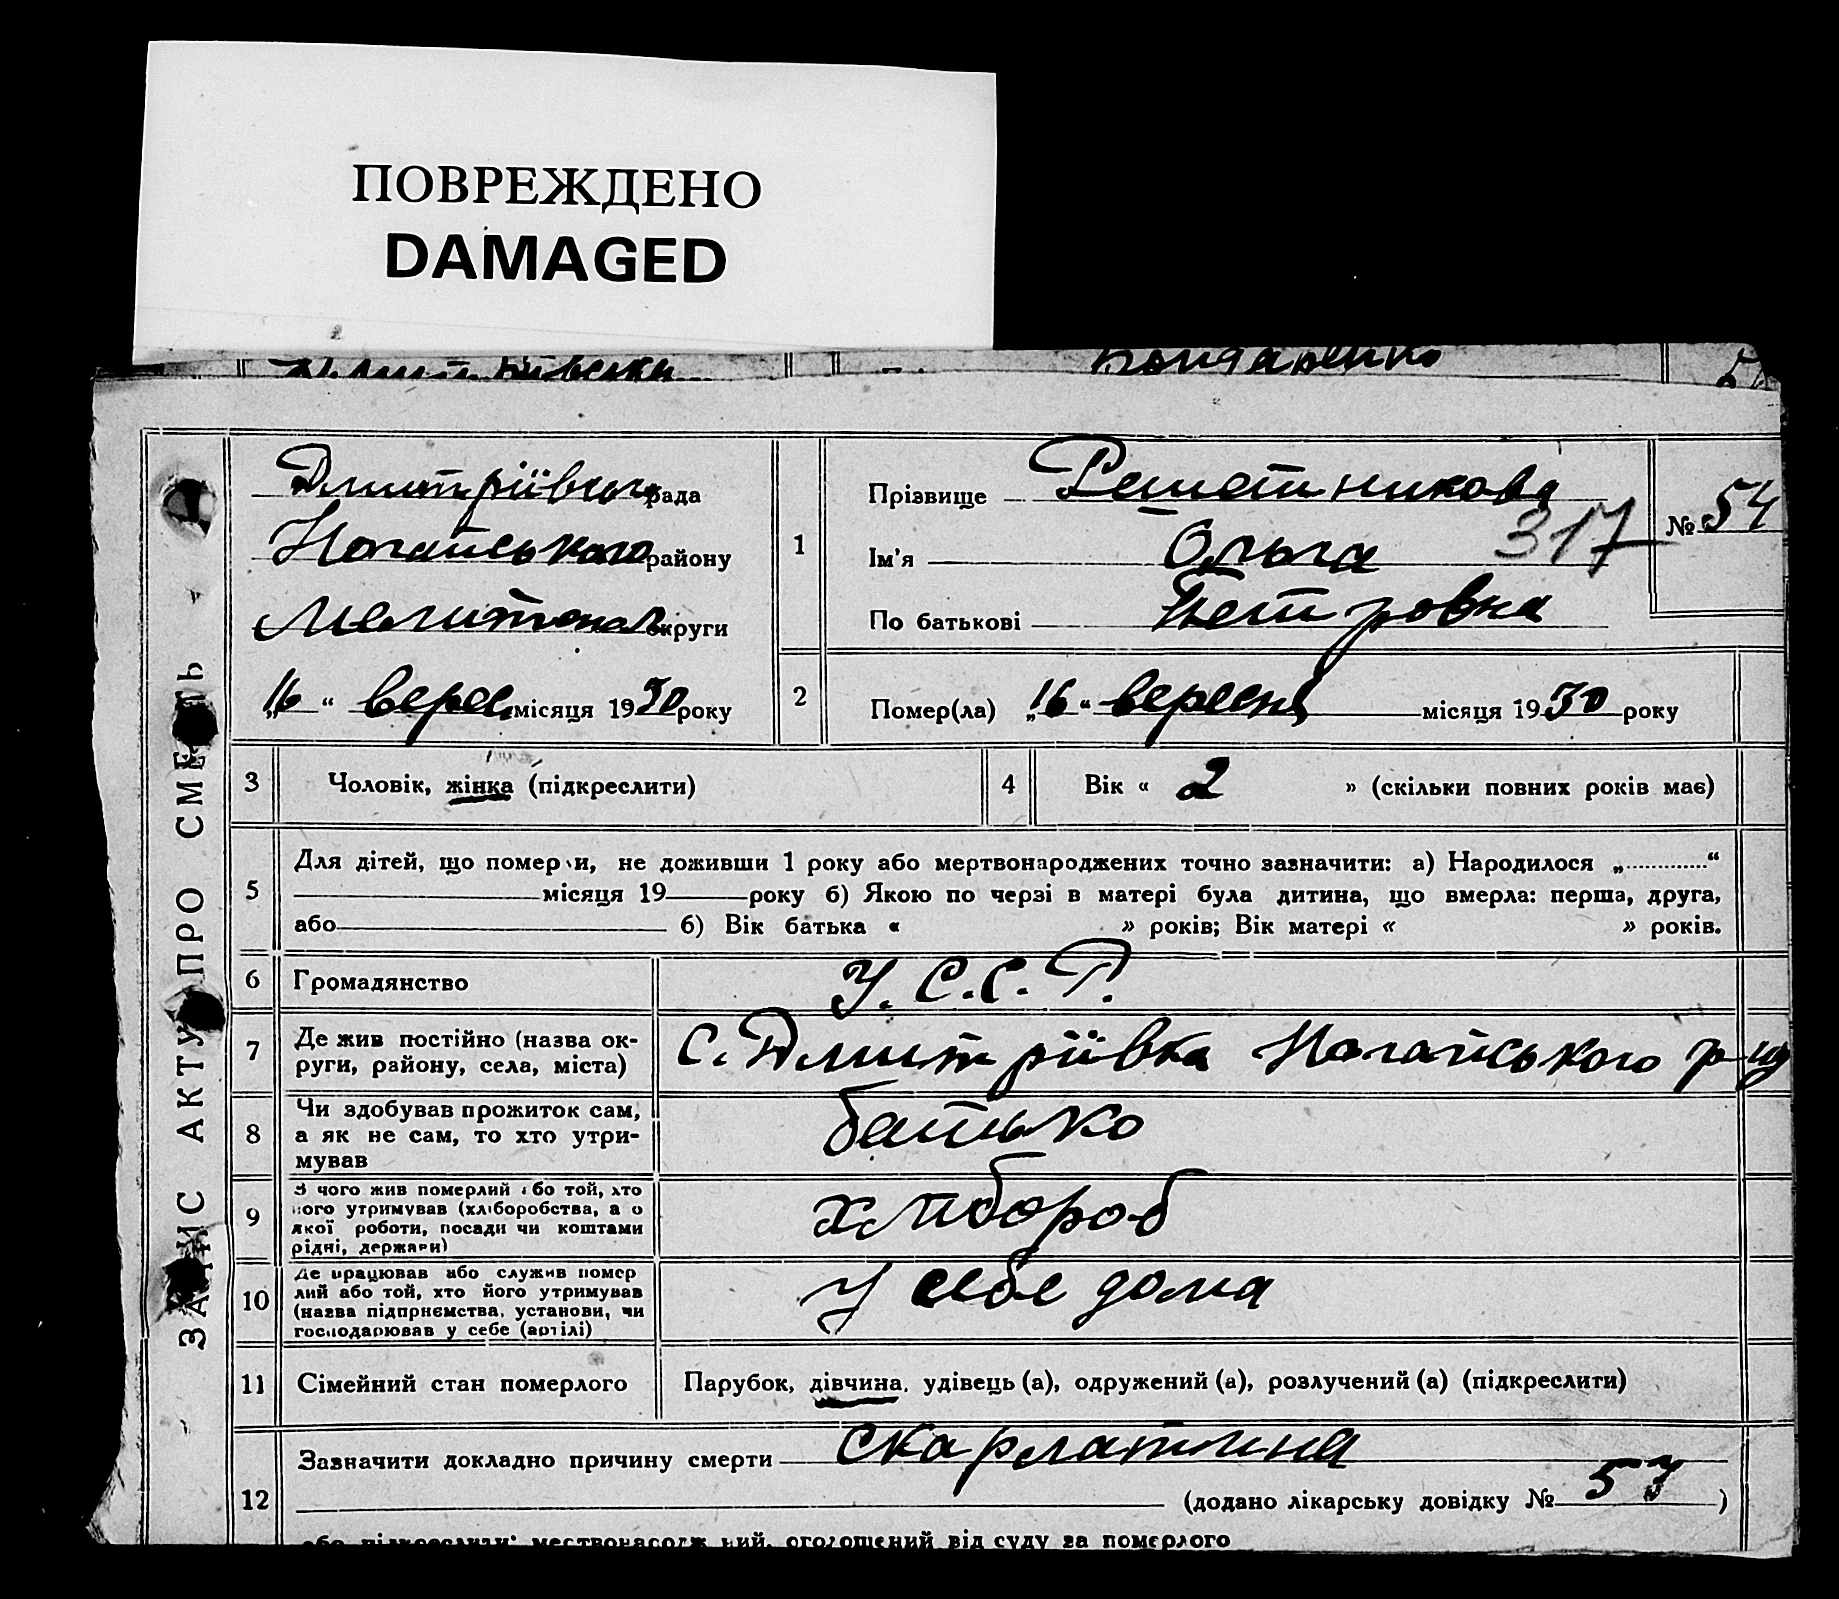 ПОВРЕЖДЕНО
DAMAGED
Бондаренко
ЗАПИС АКТУ ПРО СМЕРТЬ
Дмитріївська рада
Ногайського району
Мелитопол округи
„16“ верес місяця 1930 року
1
Прізвище Решетникова
Ім'я Ольга 317
По батькові Петровна
№ 54
2
Помер(ла) „16“ вересня місяця 1930 року
3
Чоловік, жінка (підкреслити)
4
Вік « 2 » (скільки повних років має)
5
Для дітей, що померли, не доживши 1 року або мертвонароджених точно зазначити: а) Народилося „............“
місяця 19 року б) Якою по черзі в матері була дитина, що вмерла: перша, друга,
або б) Вік батька « » років; Вік матері « » років.
6
Громадянство
У.С.С.Р.
7
Де жив постійно (назва ок-
руги, району, села, міста)
с. Дмитріївка Ногайського р-ну
8
Чи здобував прожиток сам,
а як не сам, то хто утри-
мував
батько
9
З чого жив померлий або той, хто
його утримував (хліборобства, а о
якої роботи, посади чи коштами
рідні, держави)
хлібороб
10
Де працював або служив помер
лий або той, хто його утримував
(назва підприємства, установи, чи
господарював у себе (артілі)
у себе дома
11
Сімейний стан померлого
Парубок, дівчина, удівець (а), одружений (а), розлучений (а) (підкреслити)
12
Зазначити докладно причину смерти скарлатина
(додано лікарську довідку № 57 )
або підкреслити: мертвонародж ний, оголошений від суду за померлого